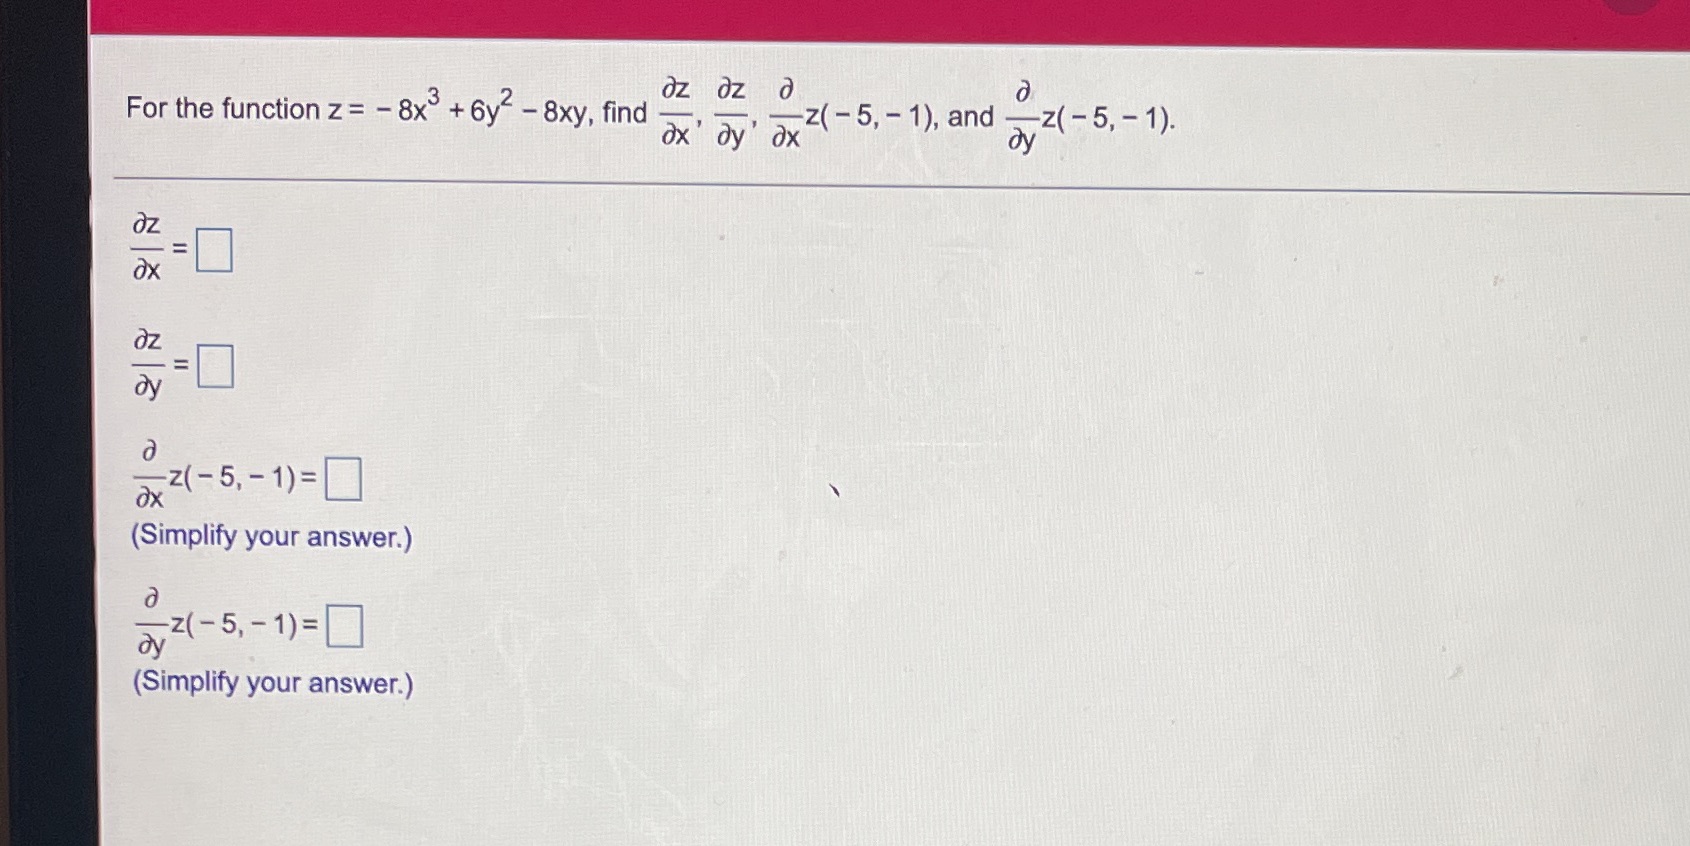 For the function z = − 8x³ + 6y² − 8xy, find ∂z/∂x, ∂z/∂y, ∂/∂x z(− 5, − 1), and ∂/∂y z(− 5, − 1).
∂z/∂x =
∂z/∂y =
∂/∂x z(− 5, − 1) =
(Simplify your answer.)
∂/∂y z(− 5, − 1) =
(Simplify your answer.)